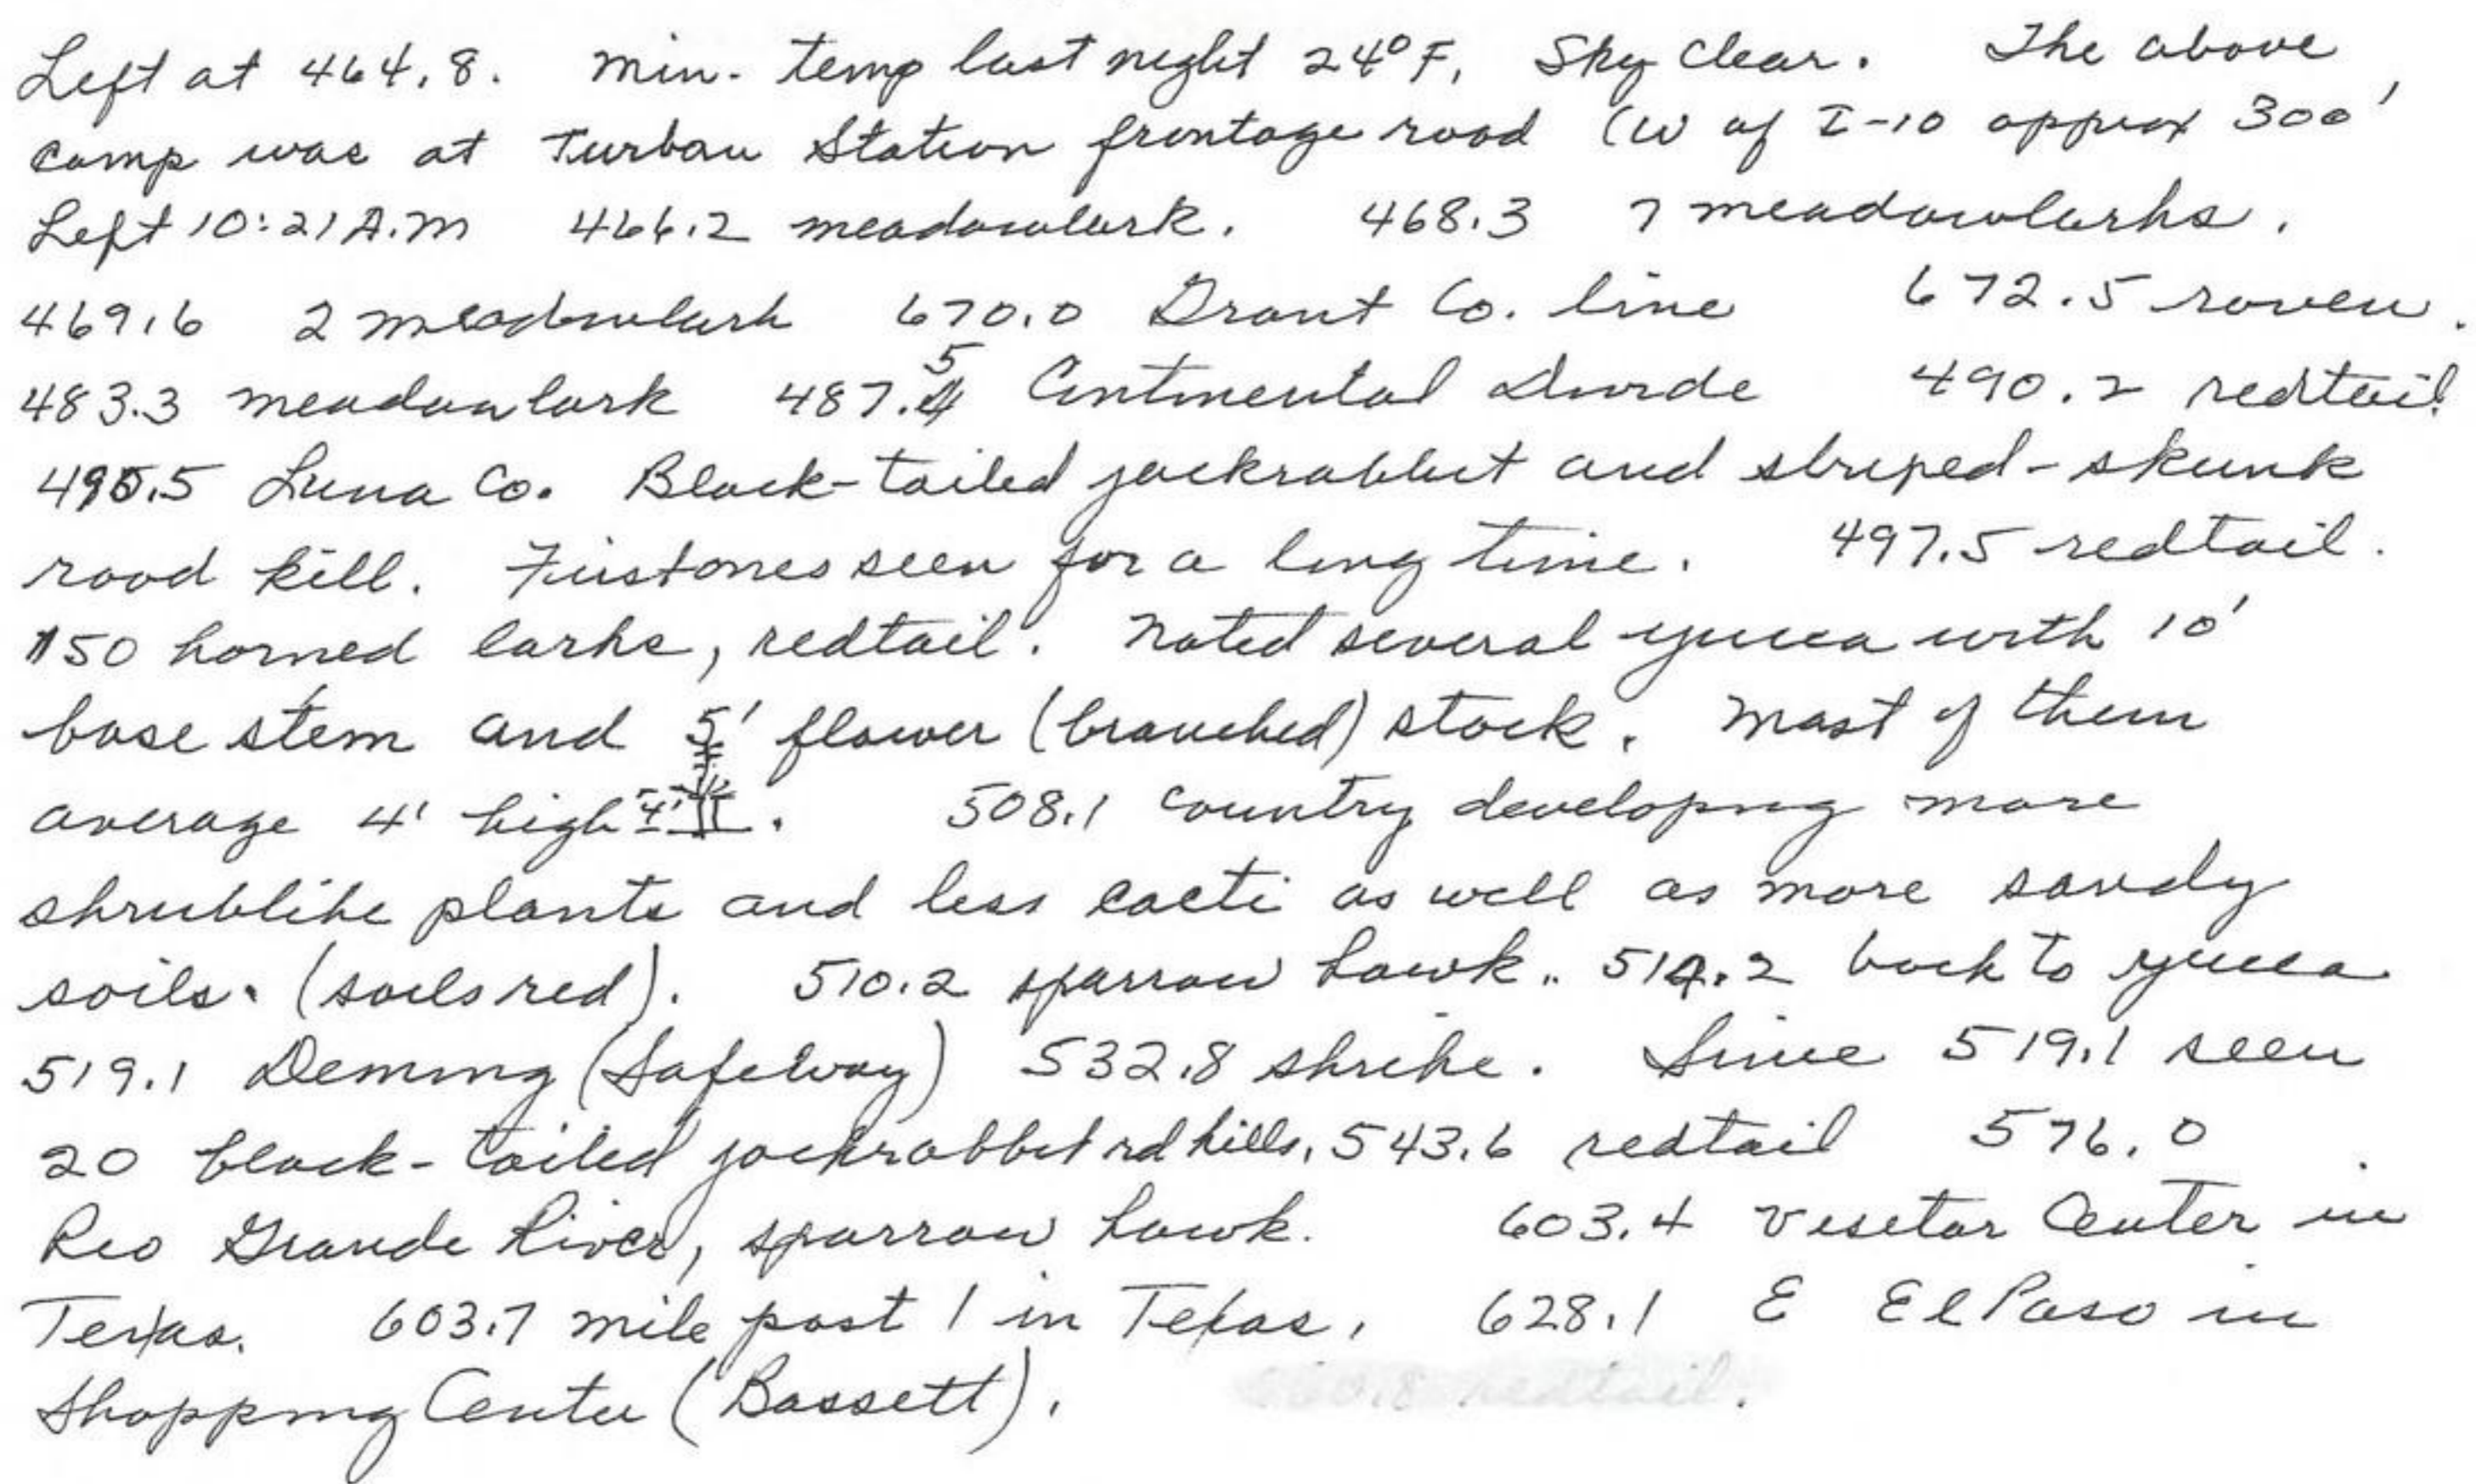 Left at 464.8. Min. temp last night 24°F, Sky clear. The above
camp was at Turban Station frontage road (W of I-10 approx 300'
Left 10:21 A.M 466.2 meadowlark. 468.3 7 meadowlarks.
469.6 2 meadowlark 670.0 Grant Co. line 672.5 raven.
483.3 meadowlark 487.5 Continental Divide 490.2 redtail
495.5 Luna Co. Black-tailed jackrabbit and striped-skunk
road kill. First ones seen for a long time. 497.5 redtail.
150 horned larks, redtail. Noted several yucca with 10'
base stem and 5' flower (branched) stock. Most of them
average 4' high 4'. 508.1 country developing more
shrublike plants and less cacti as well as more sandy
soils. (soils red). 510.2 sparrow hawk.. 514.2 back to yucca
519.1 Deming (Safeway) 532.8 shrike. Since 519.1 seen
20 black-tailed jackrabbit rd kills, 543.6 redtail 576.0
Rio Grande River, sparrow hawk. 603.4 Visitor Center in
Texas. 603.7 mile post 1 in Texas, 628.1 E El Paso in
Shopping Center (Bassett). redtail.